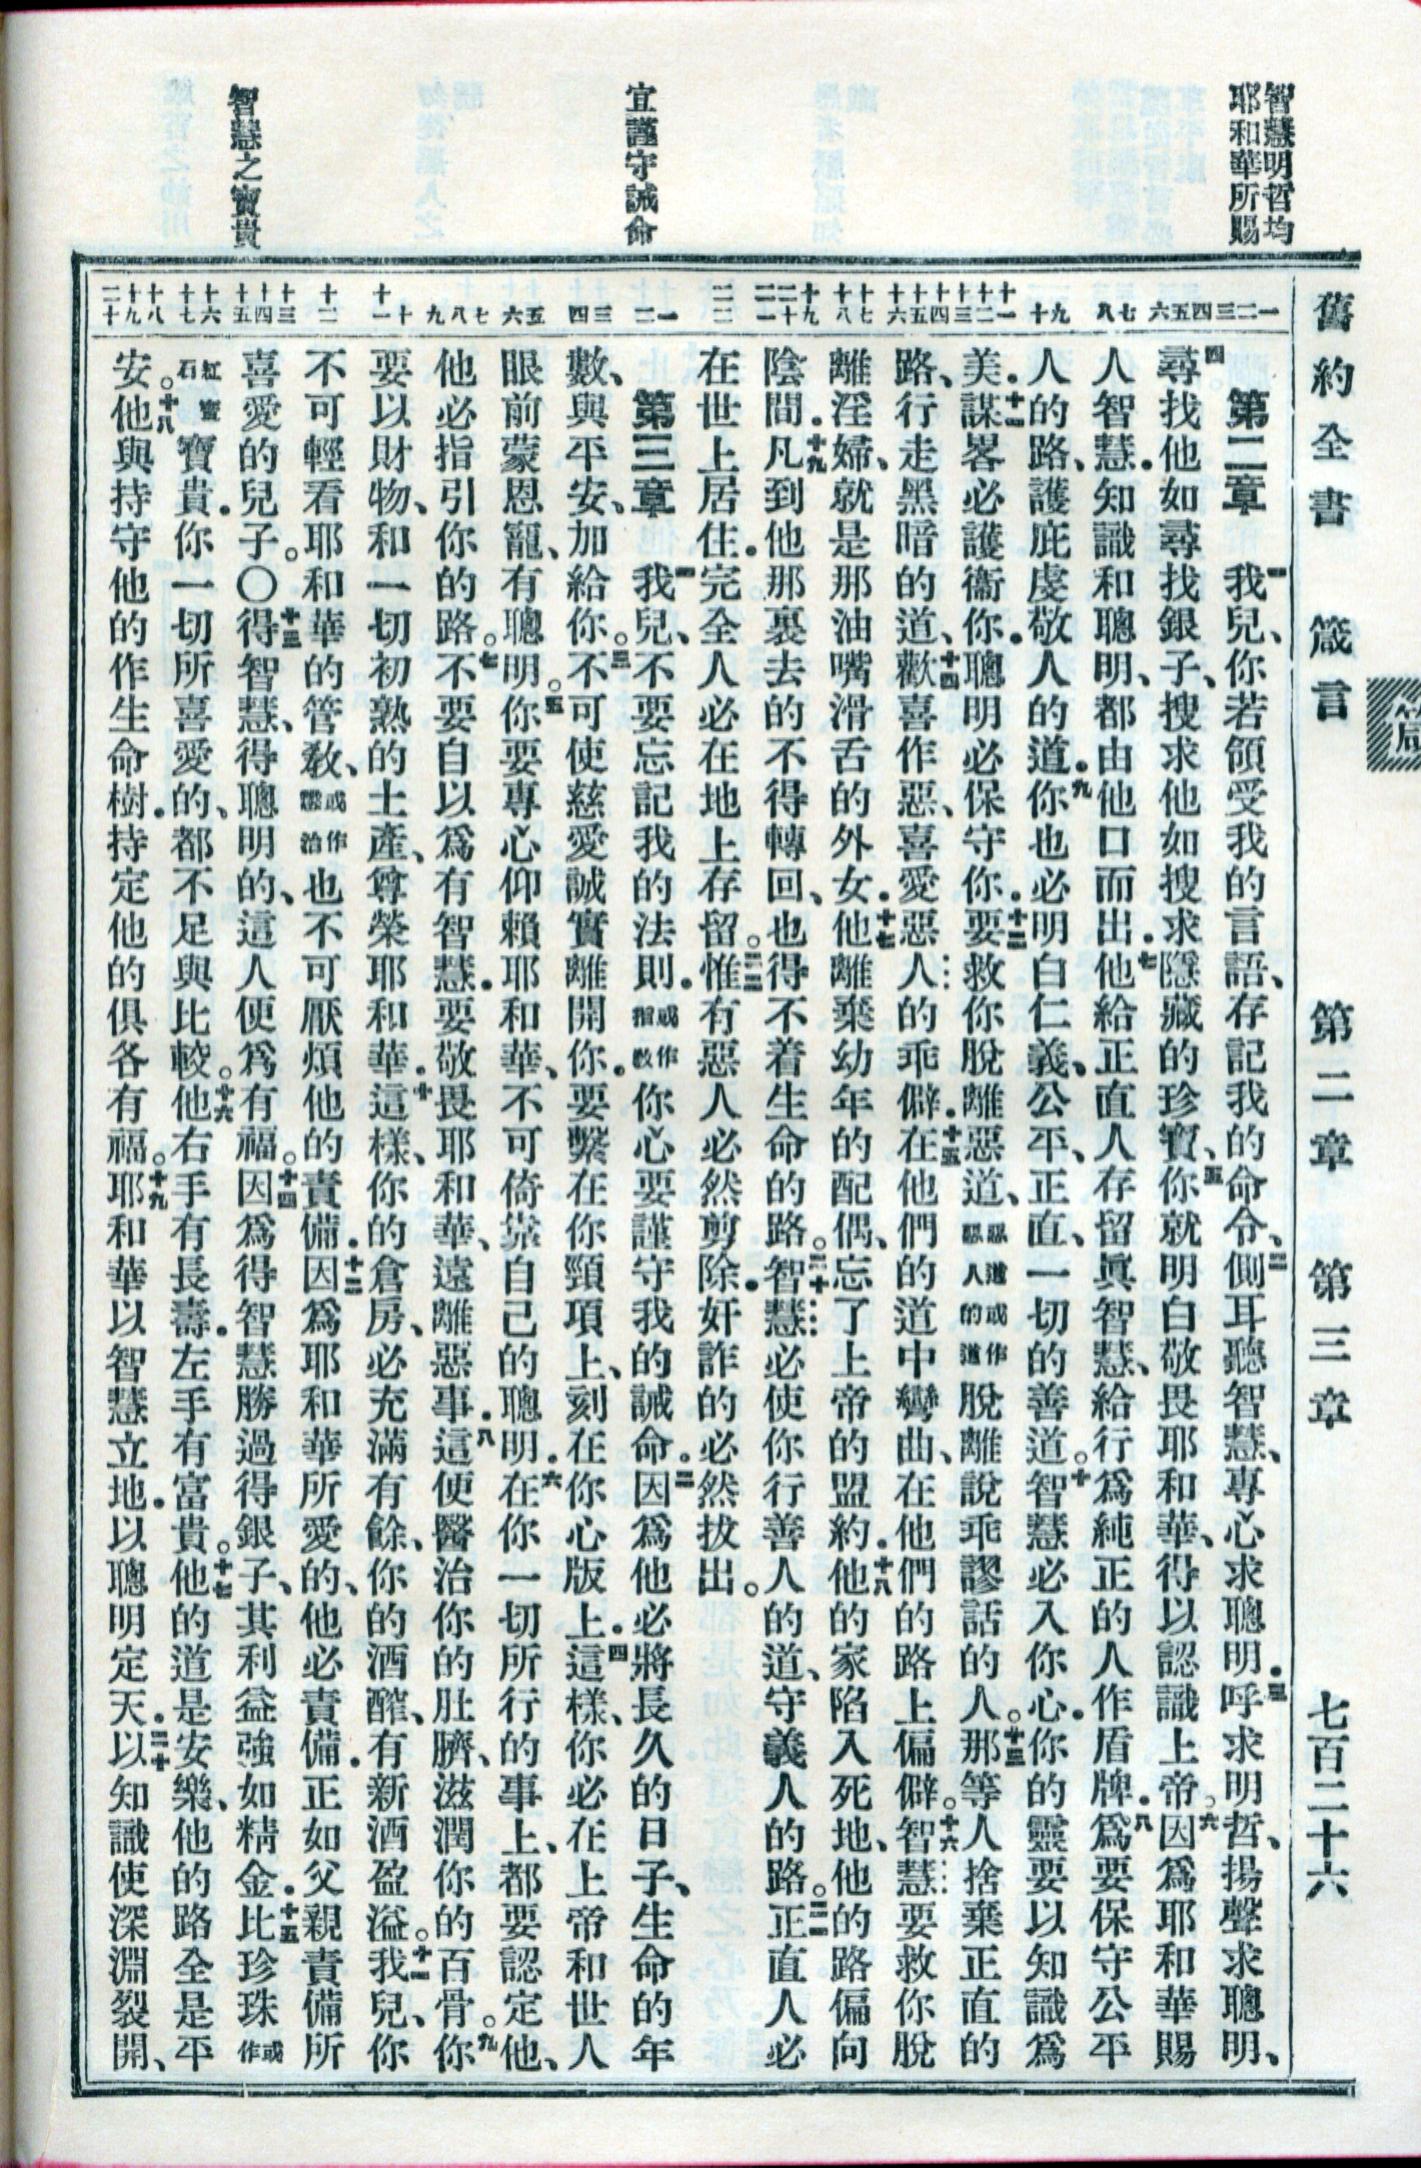 舊約全書　箴言　第二章　第三章　七百二十六
篇
智慧明哲均
耶和華所賜
宜謹守誡命
智慧之寶貴
一二三四五六七八九十十一十二十三十四十五十六十七十八十九二十二一二二一二三四五六七八九十十一十二十三十四十五十六十七十八十九二十
第二章　一我兒、你若領受我的言語、存記我的命令、二側耳聽智慧、專心求聰明．三呼求明哲、揚聲求聰明、
四尋找他如尋找銀子、搜求他如搜求隱藏的珍寶、五你就明白敬畏耶和華、得以認識上帝。六因爲耶和華賜
人智慧．知識和聰明、都由他口而出．七他給正直人存留眞智慧、給行爲純正的人作盾牌．八爲要保守公平
人的路、護庇虔敬人的道．九你也必明白仁義、公平、正直、一切的善道。十智慧必入你心．你的靈要以知識爲
美．十一謀畧必護衞你．聰明必保守你．十二要救你脫離惡道、惡道或作惡人的道脫離說乖謬話的人。十三那等人捨棄正直的
路、行走黑暗的道、十四歡喜作惡、喜愛惡人的乖僻．十五在他們的道中彎曲、在他們的路上偏僻。十六智慧要救你脫
離淫婦、就是那油嘴滑舌的外女．十七他離棄幼年的配偶、忘了上帝的盟約．十八他的家陷入死地、他的路偏向
陰間．十九凡到他那裏去的不得轉回、也得不着生命的路。二十智慧必使你行善人的道、守義人的路。二一正直人必
在世上居住．完全人必在地上存留。二二惟有惡人必然剪除．奸詐的必然拔出。
第三章　一我兒、不要忘記我的法則．或作指教你心要謹守我的誡命。二因爲他必將長久的日子、生命的年
數、與平安、加給你。三不可使慈愛誠實離開你．要繫在你頸項上、刻在你心版上．四這樣、你必在上帝和世人
眼前蒙恩寵、有聰明。五你要專心仰賴耶和華、不可倚靠自己的聰明．六在你一切所行的事上、都要認定他、
他必指引你的路。七不要自以爲有智慧．要敬畏耶和華、遠離惡事．八這便醫治你的肚臍、滋潤你的百骨。九你
要以財物、和一切初熟的土產、尊榮耶和華．十這樣、你的倉房、必充滿有餘、你的酒醡、有新酒盈溢。十一我兒、你
不可輕看耶和華的管敎、或作懲治也不可厭煩他的責備．十二因爲耶和華所愛的、他必責備．正如父親責備所
喜愛的兒子。〇十三得智慧、得聰明的、這人便爲有福。十四因爲得智慧勝過得銀子、其利益強如精金．十五比珍珠或作
紅寶石寶貴．你一切所喜愛的、都不足與比較。十六他右手有長壽．左手有富貴。十七他的道是安樂、他的路全是平
安。十八他與持守他的作生命樹．持定他的俱各有福。十九耶和華以智慧立地．以聰明定天．二十以知識使深淵裂開、